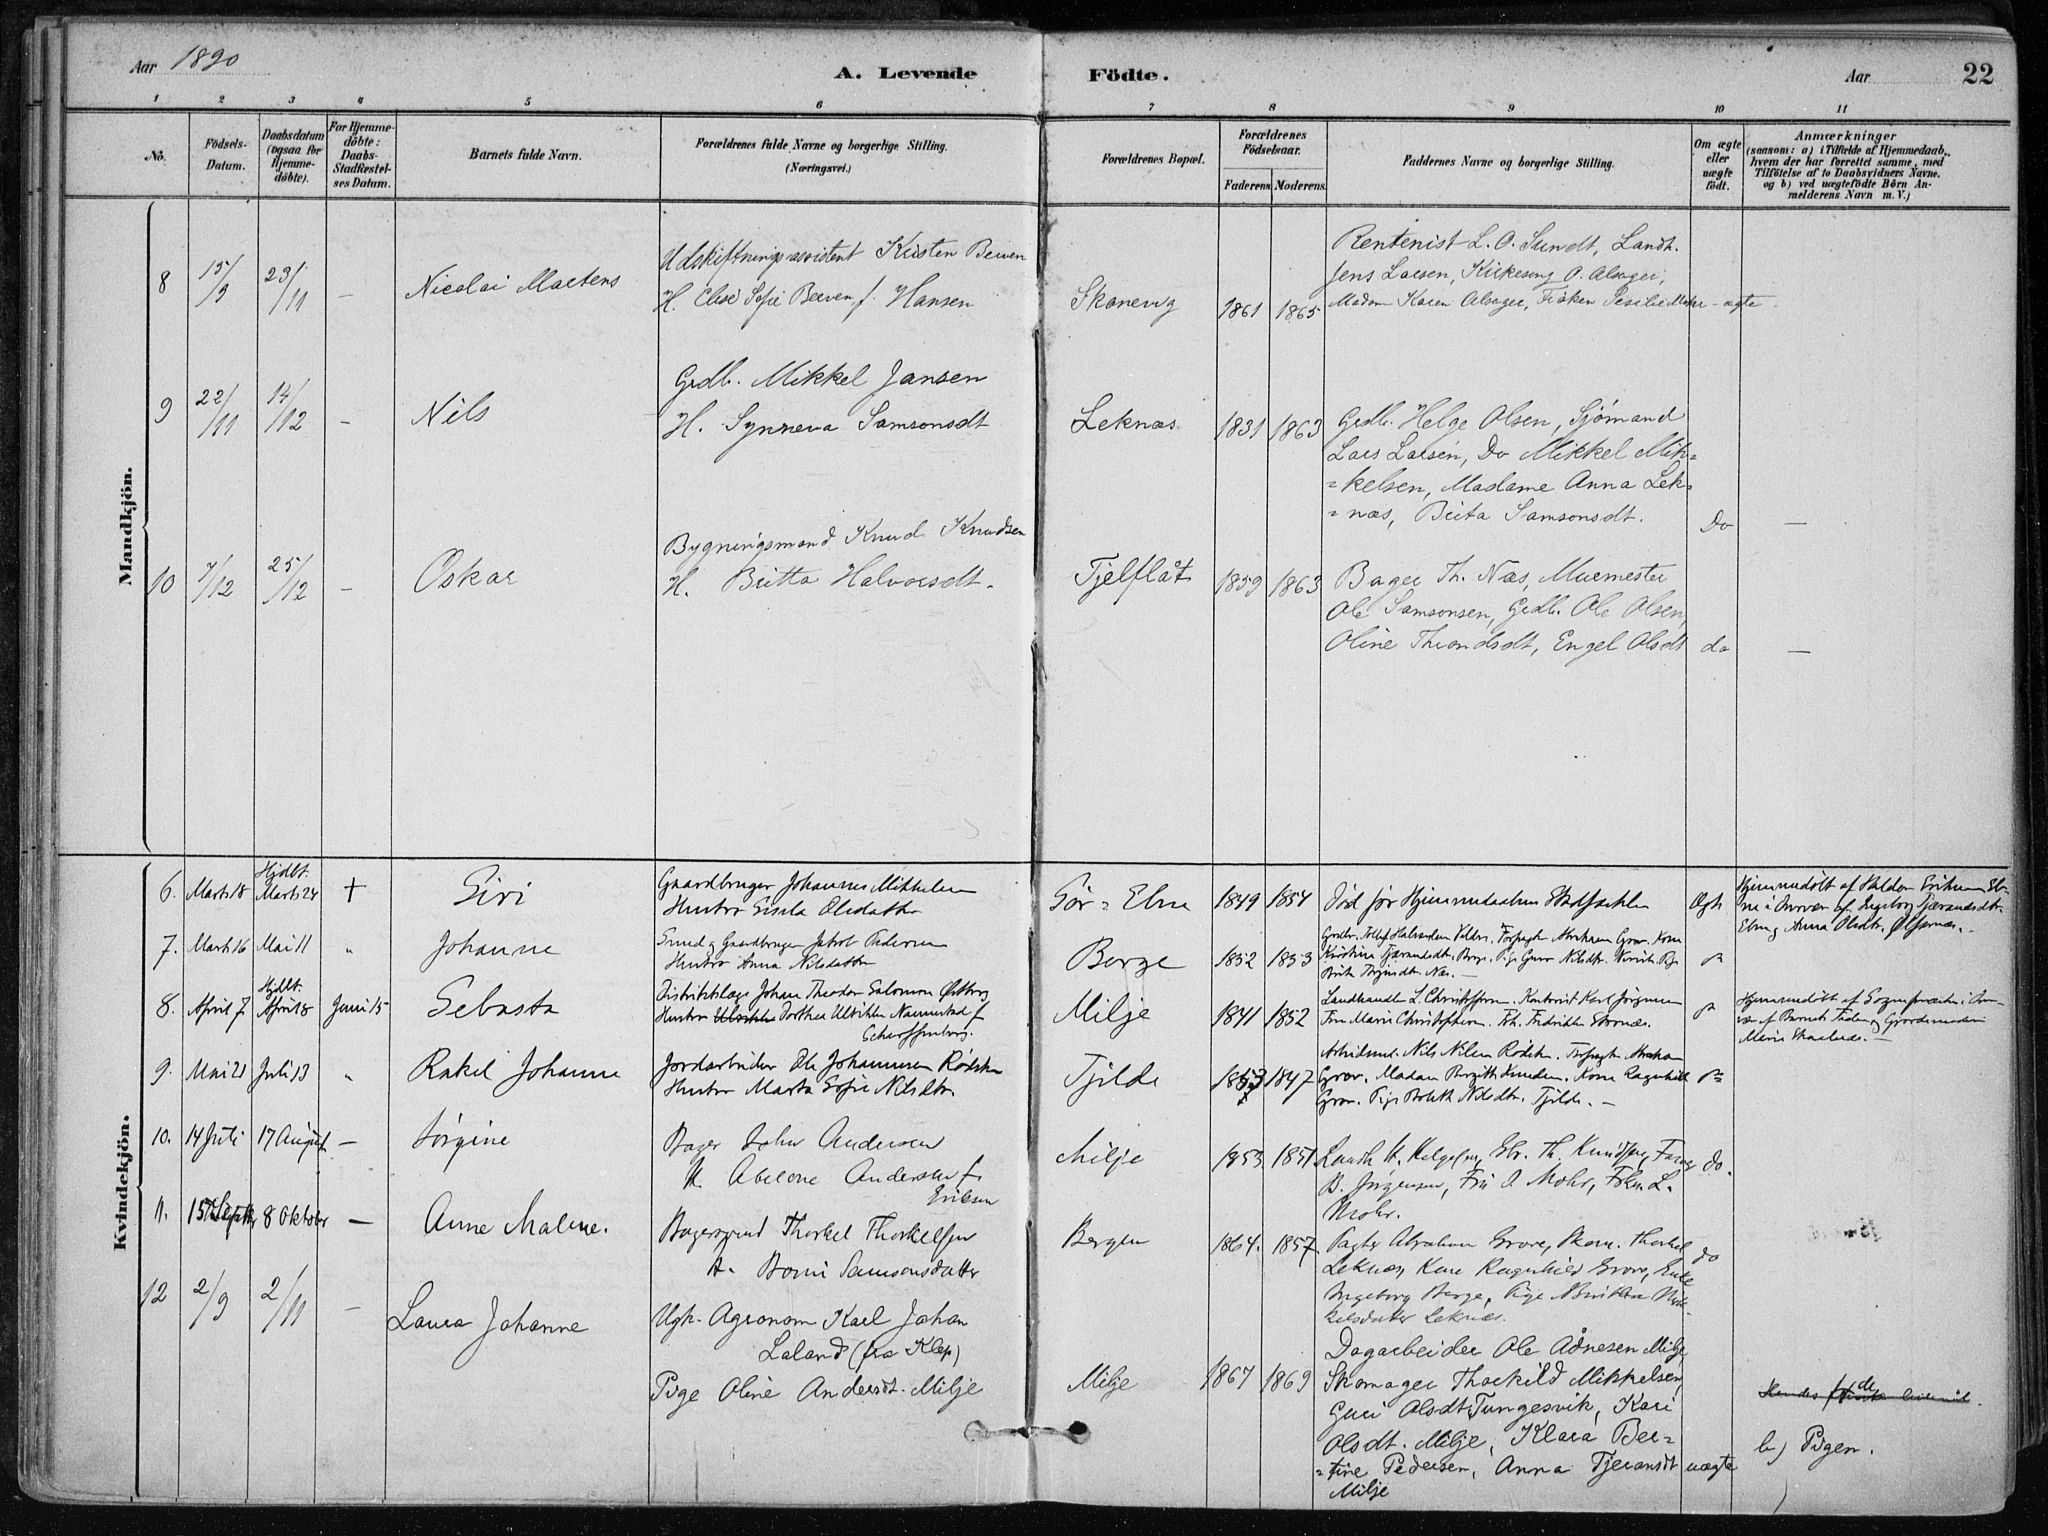 Aar 1890
A. Levende Födte.
Aar
22
1 2 3 4 5 6 7 8 9 10 11
No.
Födsels-Datum.
Daabsdatum (ogsaa for Hjemme-döbte).
For Hjemme-döbte: Daabs-Stadfæstel-ses Datum.
Barnets fulde Navn.
Forældrenes fulde Navne og borgerlige Stilling. (Næringsvei.)
Forældrenes Bopæl.
Forældrenes Födselsaar.
Faderens. Moderens.
Faddernes Navne og borgerlige Stilling.
Om ægte eller uægte födt.
Anmærkninger
(saasom: a) i Tilfælde af Hjemmedaab,
hvem der har forrettet samme, med
Tilföielse af to Daabsvidners Navne.
og b) ved uægtefödte Börn An-
melderens Navn m. V.)
Mandkjön.
8 15/9 23/11 – Nicolai Martens
Udskiftningsassistent Kristen Beiven
H. Elise Sofie Beeven f. Hansen
Skonevig 1861 1865
Rentenist L. O. Sundt, Landh.
Jens Larsen, Kirkesang. O. Alsager,
Madam Karen Alsager, Frøken Mohr – ægte
9 22/11 14/12 – Nils
Grdb. Mikkel Jansen
H. Synneva Samsonsdt
Leknæs 1831 1863
Grdb. Helge Olsen, Sjømand
Lars Larsen, Do Mikkel Mik=
=kelsen, Madame Anna Lek=
=næs, Brita Samsonsdt. Do –
10 7/12 25/12 – Oskar
Bygningsmand Knud Knudsen
H. Britta Halvorsdt.
Tjelflåt 1859 1863
Bager Th. Næs, Murmester
Ole Samsonsen, Grdb. Ole Olsen,
Oline Throndsdt, Engel Olsdt do –
Kvindekjön.
6. Marts 18 Hjdbt. Marts 24 † Siri
Gaardbruger Johannes Mikkelsen
Hustru Sisela Olsdatter
Sør-Elne 1849 1854
Død før Hjemmedaabens Stadfæstelse
Ægte
Hjemmedøbt af Halvor Eriksen
Anna Olsdtr. Ølfernæs. –
7. Marts 16 Mai 11 " Johanne
Smed og Gaardbruger Jakob Pedersen
Hustru Anna Nilsdatter
Berge 1852 1853
8. April 7 Hjdbt. April 8 Juni 15 Sebasta
Distriktslæge Johan Theodor Salomon
Hustru Dorthea Ulrikke Nannestad f
Scharffenberg.
Milje 1841 1852
Landhandler L. Christophersen. Kontorist Karl Jörgensen
Fru Marie Christophersen. Frk. Fredrikke
Hjemmedøbt af Sognepræsten i
9. Mai 21 Juli 13 " Rakel Johanne
Jordarbeider Ole Johannesen Rødsten
Hustru Marta Sofie Nilsdtr.
Tjilde 1853 1847
Arbeidsmd. Nils Nilsen Rødsten. Abraham
Grov. Madam Bergitte Knudsen. Kone Ragnhild
Grov. Pige Bolette Nilsdtr. Tjilde. –
10. 14 Juli 17 August – Jørgine
Bager John Andersen
H. Abelone Andersen f.
Eriksen
Milje 1853 1851
Landh. K. Helgesen, Th. Knudsen,
B. Jørgensen, Fru A Mohr, Frken L.
Mohr. do.
11. 15 Septbr 8 Oktober – Anne Malene.
Bagersvend Thorkel Thorkelsen
H. Borni Samsonsdatter
Bergen 1864. 1857.
Pagter Abraham Grove, Skom. Thorkel
Leknæs, Kone Ragnhild Grove, Enke
Ingeborg Berge, Pige Mik-
kelsdatter Leknæs. do
12 2/9 2/11 – Laura Johanne
Ugk. Agronom Karl Johan
Laland (fra Klep)
Pige Oline Andersdt. Milje
Milje 1867 1869
Dagarbeider Ole Adnesen Milje,
Skomager Thorkild Mikkelsen,
Guri Olsdt Tungesvik, Kari
Olsdt. Milje, Klara Ber=
=tine Pedersen, Anna Tjeransdt uægte
Milje
b) Pigen.